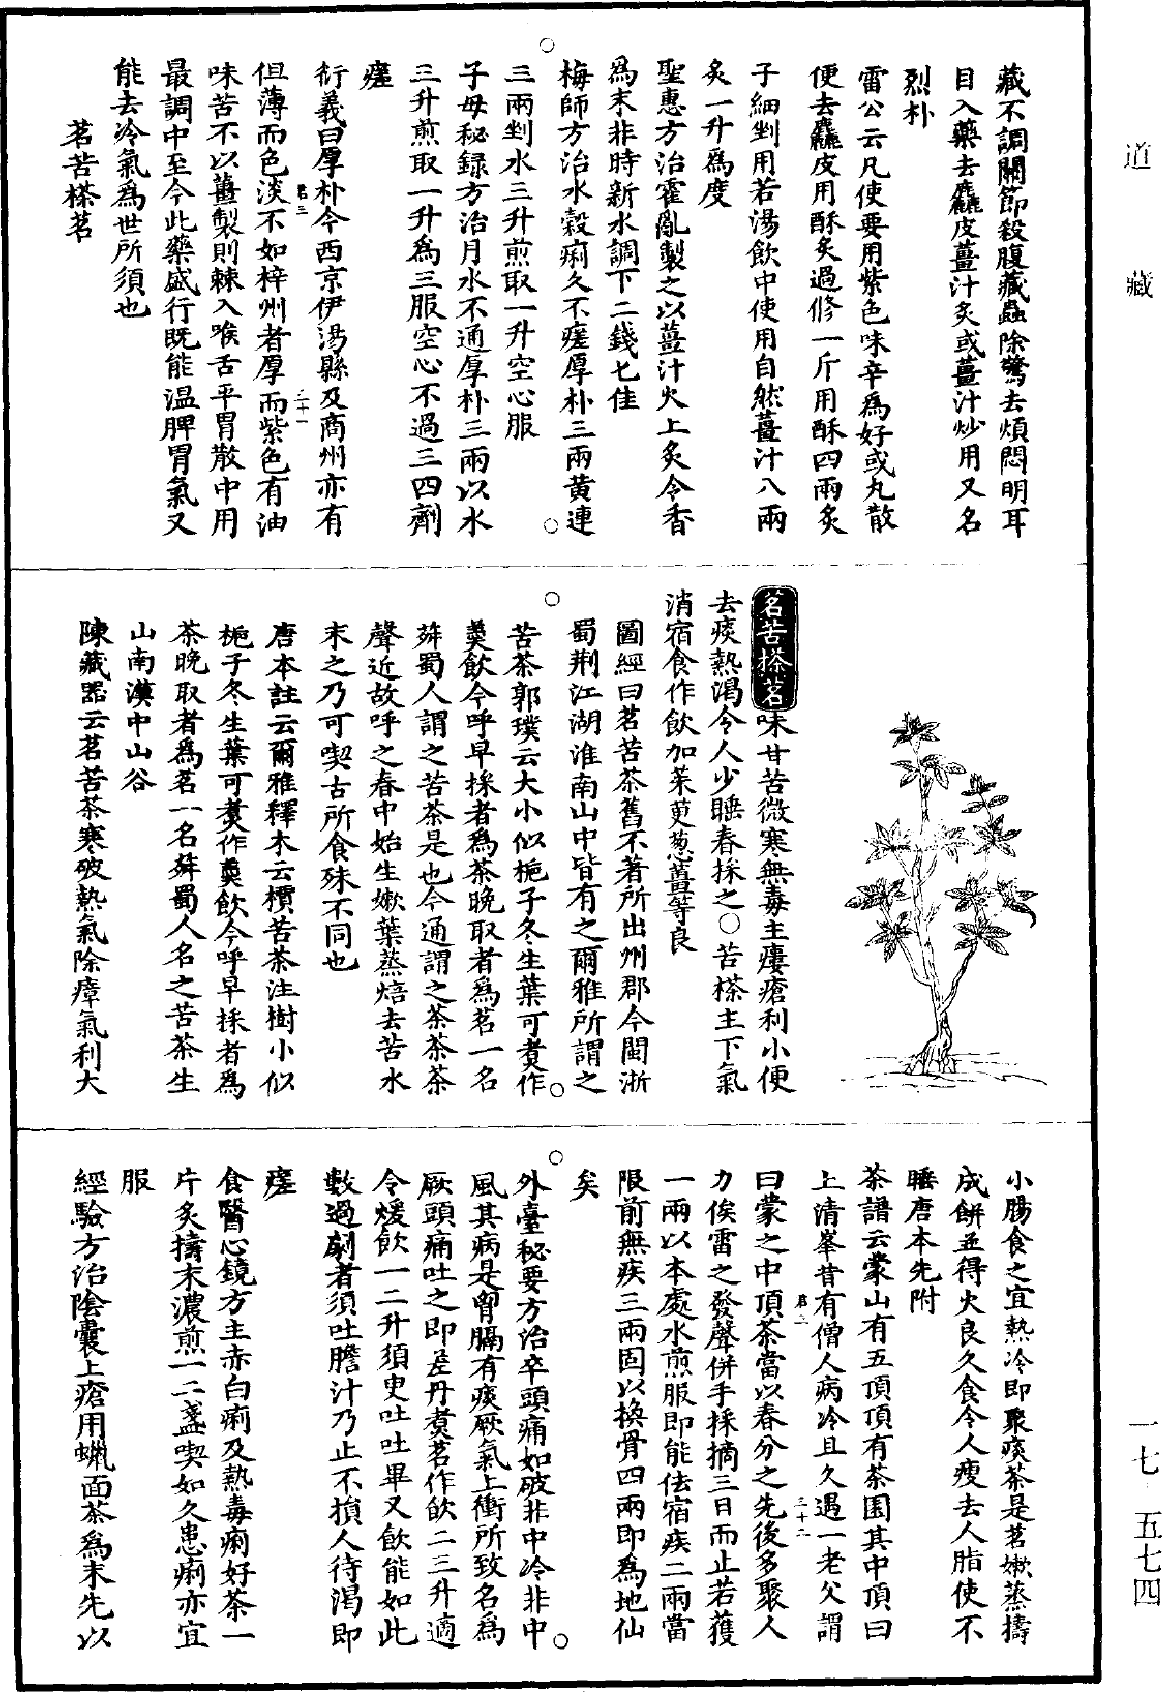 道藏
藏不調關節殺腹藏蟲除驚去煩悶明耳
目入藥去麤皮薑汁炙或薑汁炒用又名
烈朴
雷公云凡使要用紫色味辛爲好或丸散
便去麤皮用酥炙過修一斤用酥四兩炙
子細剉用若湯飲中使用自然薑汁八兩
炙一升爲度
聖惠方治霍亂製之以薑汁火上炙令香
爲末非時新水調下二錢匕佳
梅師方治水穀痢久不瘥厚朴三兩黃連
三兩剉水三升煎取一升空心服
子母秘録方治月水不通厚朴三兩以水
三升煎取一升爲三服空心不過三四劑
瘥
衍義曰厚朴今西京伊湯縣及商州亦有
但薄而色淡不如梓州者厚而紫色有油
味苦不以薑製則棘入喉舌平胃散中用
最調中至今此藥盛行既能温脾胃氣又
能去冷氣爲世所須也
茗苦榛茗
茗苦搽茗味甘苦微寒無毒主瘻瘡利小便
去痰熱渴令人少睡春採之〇苦搽主下氣
消宿食作飲加茱萸葱薑等良
圖經曰茗苦茶舊不著所出州郡今閩浙
蜀荆江湖淮南山中皆有之爾雅所謂之
苦茶郭璞云大小似梔子冬生葉可煑作
羹飲今呼早採者爲茶晚取者爲茗一名
荈蜀人謂之苦茶是也今通謂之茶茶茶
聲近故呼之春中始生嫩葉蒸焙去苦水
末之乃可喫古所食殊不同也
唐本註云爾雅釋木云檟苦茶注樹小似
梔子冬生葉可煑作羹飲今呼早採者爲
茶晚取者爲茗一名荈蜀人名之苦茶生
山南漢中山谷
陳藏器云茗苦茶寒破熱氣除瘴氣利大
小腸食之宜熱冷即聚痰茶是茗嫩蒸擣
成餅並得火良久食令人瘦去人脂使不
睡唐本先附
茶譜云蒙山有五頂頂有茶園其中頂曰
上清峯昔有僧人病冷且久遇一老父謂
曰蒙之中頂茶當以春分之先後多聚人
力俟雷之發聲併手採摘三日而止若獲
一兩以本處水煎服即能佉宿疾二兩當
限前無疾三兩固以換骨四兩即爲地仙
矣
外臺秘要方治卒頭痛如破非中冷非中
風其病是胷膈有痰厥氣上衝所致名爲
厥頭痛吐之即差丹煑茗作飲二三升適
令煖飲一二升須臾吐吐畢又飲能如此
數過劇者須吐膽汁乃止不損人待渴即
瘥
食醫心鏡方主赤白痢及熱毒痢好茶一
片炙擣末濃煎一二盞喫如久患痢亦宜
服
經驗方治陰囊上瘡用蠟面茶爲末先以
一七 五七四